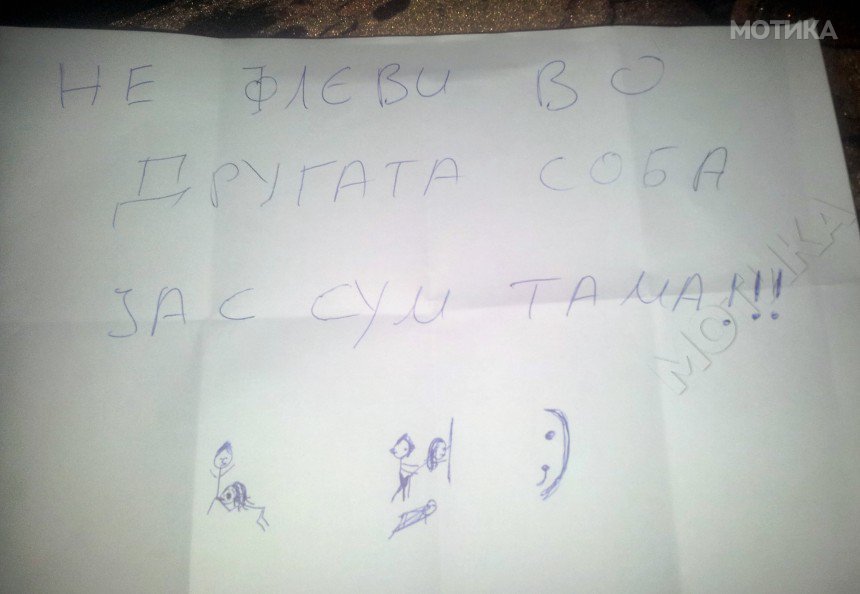 МОТИКА
НЕ ФЛЕВИ ВО
ДРУГАТА СОБА
ЈАС СУМ ТАМА!!!
МОТИКА
;)